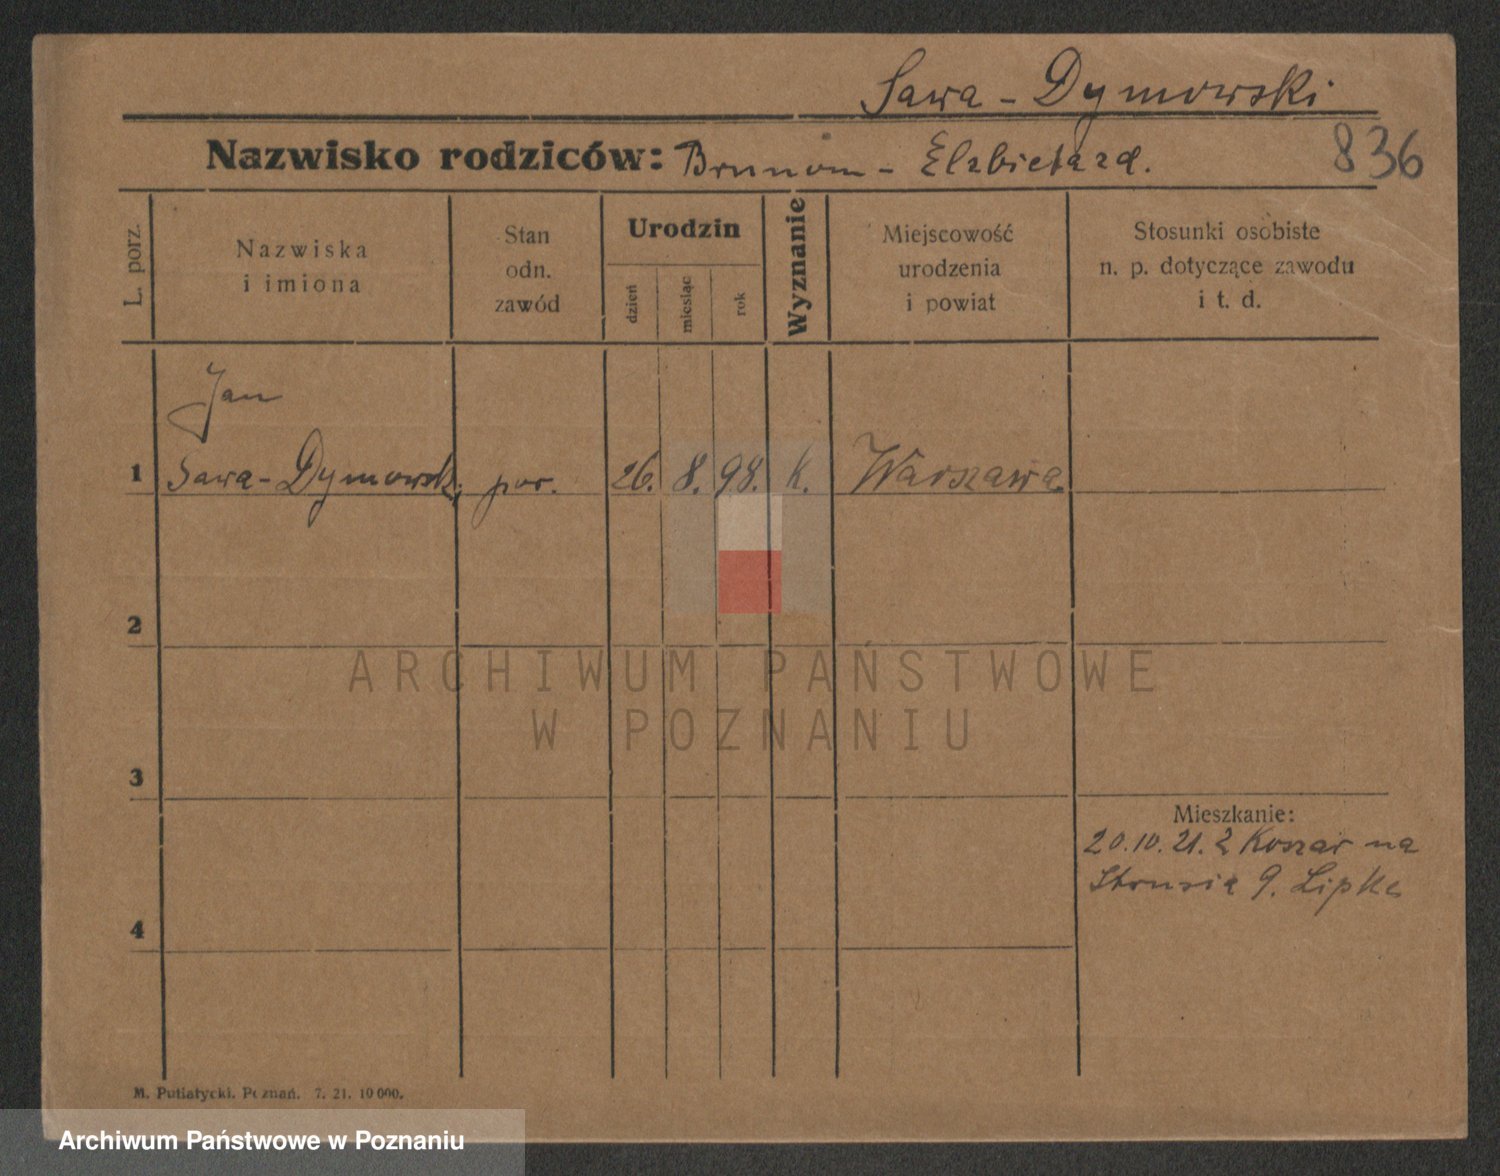 Sawa - Dymowski
Nazwisko rodziców: Brunon - Elzbieta zd.
836
L. porz.
Nazwiska
i imiona
Stan
odn.
zawód
Urodzin
dzień
miesiąc
rok
Wyznanie
Miejscowość
urodzenia
i powiat
Stosunki osobiste
n. p. dotyczące zawodu
i t. d.
Jan
1 Sawa - Dymowski por. 26. 8. 98. k. Warszawa
2
ARCHIWUM PAŃSTWOWE
W POZNANIU
3
Mieszkanie:
20.10.21. Koszar na
9. Lipka
4
M. Putiatycki. Poznań. 7. 21. 10 000.
Archiwum Państwowe w Poznaniu